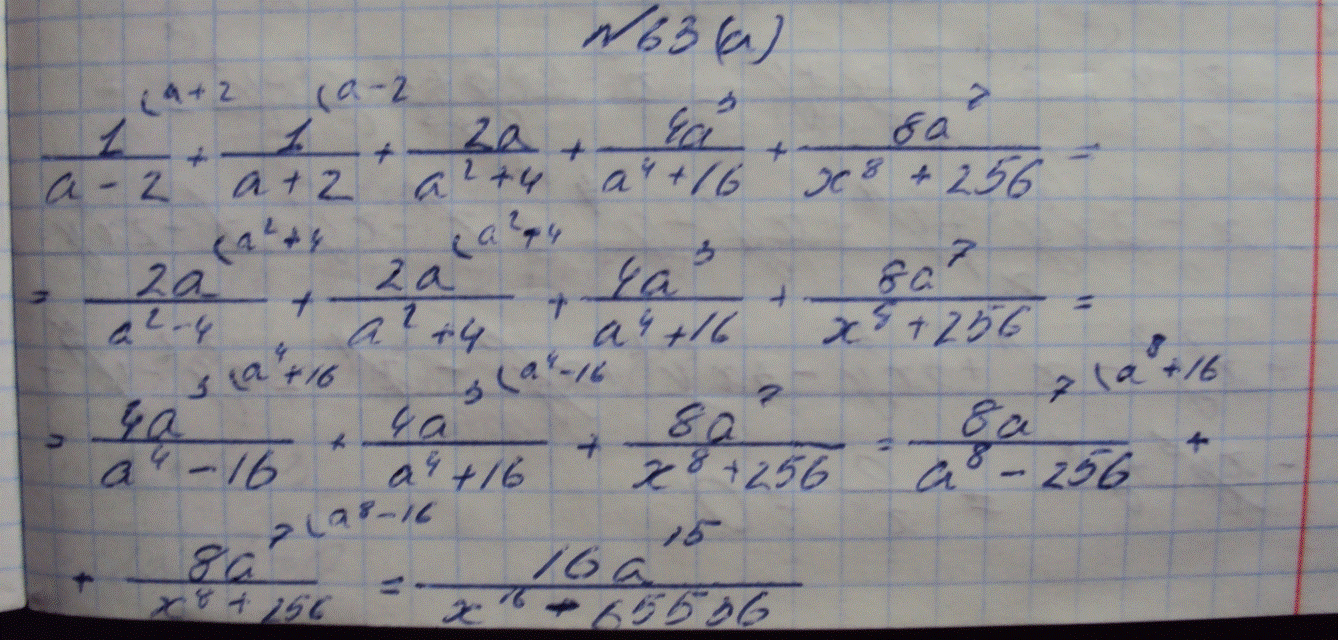 №63(а)
1/(a-2) (a+2 + 1/(a+2) (a-2 + 2a/(a²+4) + 4a³/(a⁴+16) + 8a⁷/(x⁸+256) =
= 2a/(a²-4) (a²+4 + 2a/(a²+4) (a²+4 + 4a³/(a⁴+16) + 8a⁷/(x⁸+256) =
= 4a³/(a⁴-16) (a⁴+16 + 4a³/(a⁴+16) (a⁴-16 + 8a⁷/(x⁸+256) = 8a⁷/(a⁸-256) (a⁸+16 +
+ 8a⁷/(x⁸+256) (a⁸-16 = 16a¹⁵/(x¹⁶-65536)